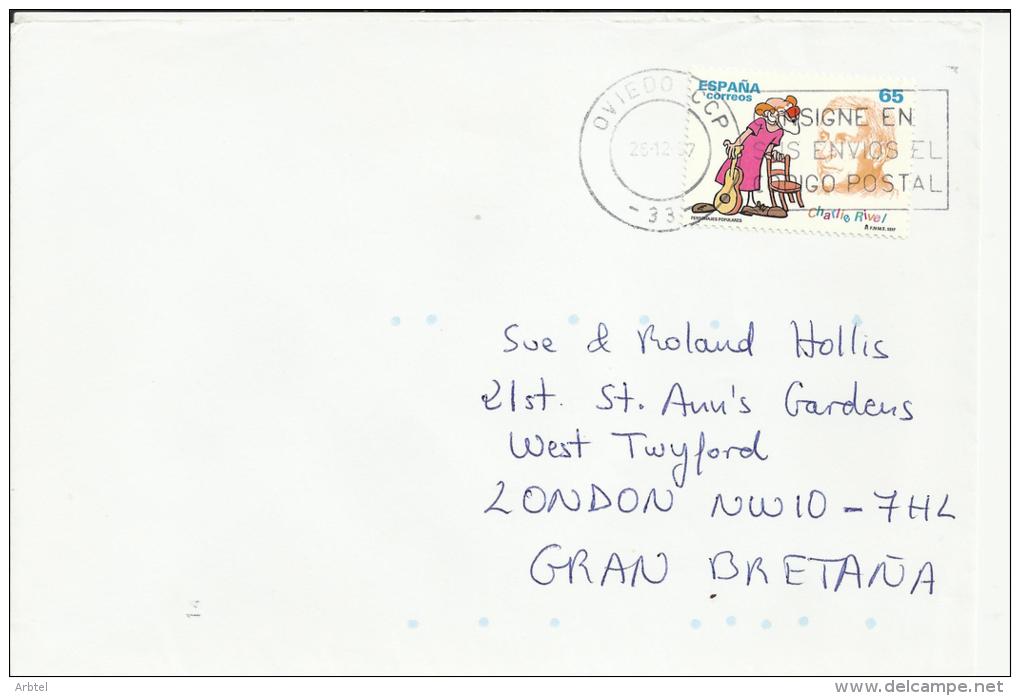 ESPAÑA
correos
65
OVIEDO CCP
26-12-97
- 33
CONSIGNE EN
SUS ENVIOS EL
CODIGO POSTAL
Charlie Rivel
PERSONAJES POPULARES
F.N.M.T. 1997
Sue & Roland Hollis
21st. St. Ann's Gardens
West Twyford
LONDON NW10 - 7HL
GRAN BRETAÑA
Arbtel
delcampe.net